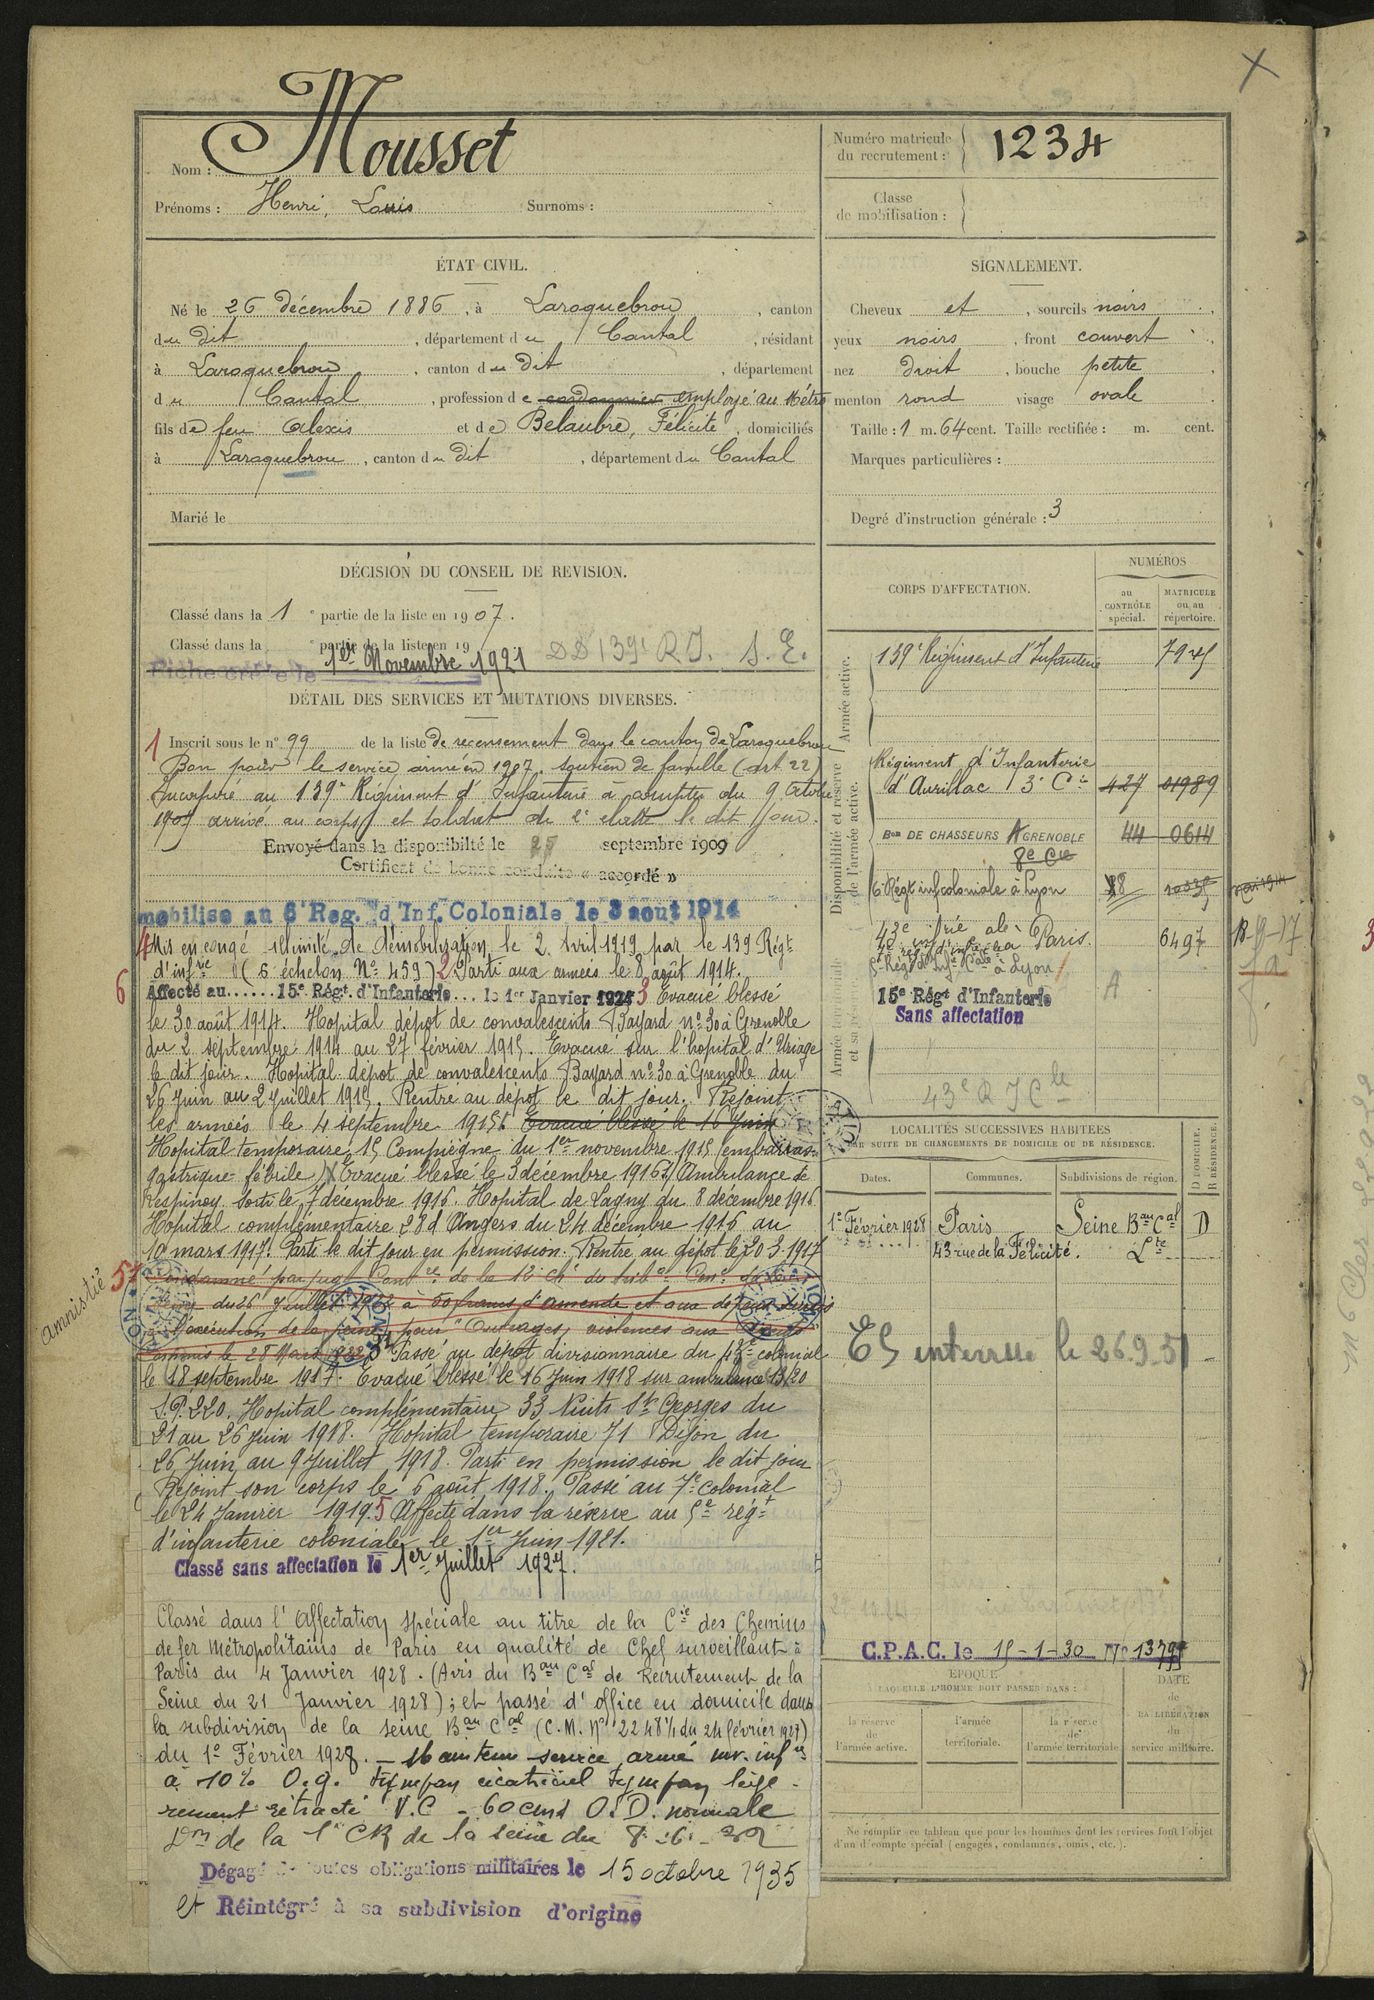 Mousset
Nom :
Prénoms : Henri, Louis Surnoms :
Numéro matricule du recrutement : 1234
Classe de mobilisation :
ÉTAT CIVIL.
Né le 26 décembre 1886, à Laroquebrou, canton
du dit, département du Cantal, résidant
à Laroquebrou, canton du dit, département
du Cantal, profession de cordonnier employé au Métro
fils de feu Alexis et de Belaubre, Félicité, domiciliés
à Laroquebrou, canton du dit, département du Cantal
Marié le
SIGNALEMENT.
Cheveux et, sourcils noirs
yeux noirs, front couvert
nez droit, bouche petite
menton rond visage ovale
Taille : 1 m. 64 cent. Taille rectifiée : m. cent.
Marques particulières :
Degré d'instruction générale : 3
DÉCISION DU CONSEIL DE REVISION.
Classé dans la 1e partie de la liste en 1907.
Classé dans la e partie de la liste en 19
Fiche créée le 1er Novembre 1921 DD 139e RI. S.E.
DÉTAIL DES SERVICES ET MUTATIONS DIVERSES.
1 Inscrit sous le n° 99 de la liste de recensement dans le canton de Laroquebrou
Bon pour le service armé en 1907. soutien de famille (art 22)
Incorporé au 139e Régiment d'Infanterie à compter du 9 Octobre
1907 arrivé au corps et soldat de 2e classe le dit jour.
Envoyé dans la disponibilté le 25 septembre 1909
Certificat de bonne conduite « accordé »
mobilise au 6e Reg. d'Inf. Coloniale le 3 aout 1914
4 Mis en congé illimité de démobilisation le 2 Avril 1919 par le 139 Régt
d'infrie (6 échelon N° 459) 2 Parti aux armées le 8 août 1914.
6 Affecté au...... 15e Régt. d'Infanterie... le 1er Janvier 1924 3 Evacué blessé
le 30 août 1914. Hopital dépot de convalescents Bayard n° 30 à Grenoble
du 2 septembre 1914 au 27 février 1915. Evacué sur l'hopital d'Uriage
le dit jour. Hopital dépot de convalescents Bayard n° 30 à Grenoble du
26 Juin au 2 Juillet 1915. Rentré au dépot le dit jour. Rejoint
les armées le 4 septembre 1915. Evacué blessé le 16 Juin
Hopital temporaire 15 Compiègne du 1er novembre 1915 (embarras
gastrique fébrile) Evacué blessé le 3 décembre 1916 Ambulance de
Sorti le 7 décembre 1916. Hopital de Lagny du 8 décembre 1916
Hopital complémentaire 28 d'Angers du 24 décembre 1916 au
10 mars 1917. Parti le dit jour en permission. Rentré au dépot le 20 3 1917
amnistié
Condamné par jugt de la 12 ch du
du 26 Juillet 1922 à 50 francs d'amende et aux dépens
exécution de la peine, pour "Outrages, violences aux
commis le 28 Mars 1922 Passé au dépot divisionnaire du 43e colonial
le 18 septembre 1917. Evacué blessé le 16 Juin 1918 sur ambulance 13/20
S.P. 220. Hopital complémentaire 33 Nuits St Georges du
21 au 26 Juin 1918. Hopital temporaire 71 Dijon du
26 Juin au 9 Juillet 1918. Parti en permission le dit jour
Rejoint son corps le 6 août 1918. Passé au 7e Colonial
le 24 Janvier 1919. 5 Affecté dans la réserve au 5e régt
d'infanterie coloniale le 1er Juin 1921.
Classé sans affectation le 1er Juillet 1927.
Classé dans l'Affectation Spéciale au titre de la Cie des Chemins
de fer Métropolitains de Paris en qualité de Chef surveillant à
Paris du 4 Janvier 1928. (Avis du Bau Cal de Recrutement de la
Seine du 21 Janvier 1928); et passé d'office en domicile dans
la subdivision de la Seine Bau Cal (C.M. N° 2248 1/1 du 24 février 1927)
du 1er Février 1928. — Maintenu service armé inv. infre
à 10% O.g. tympan cicatriciel tympan légè-
rement rétracté V.C - 60 cms O.D. normale
Don de la 1e CR de la Seine du
Dégagé de toutes obligations militaires le 15 octobre 1935
et Réintégré à sa subdivision d'origine
CORPS D'AFFECTATION.
NUMÉROS
au CONTRÔLE spécial.
MATRICULE ou au répertoire.
Armée active.
139e Régiment d'Infanterie
Disponibilité et réserve de l'armée active.
Régiment d'Infanterie
d'Aurillac 13e Cie 427 01989
Bon DE CHASSEURS A GRENOBLE 44 0614
8e Cie
6 Régt inf coloniale à Lyon
43e infrie cle Paris. 6497
5e Régt d'Inf Cle à Lyon
15e Régt d'Infanterie A
Sans affectation
Armée territoriale
43e R I Cle
LOCALITÉS SUCCESSIVES HABITÉES
PAR SUITE DE CHANGEMENTS DE DOMICILE OU DE RÉSIDENCE.
Dates. Communes. Subdivisions de région. D DOMICILE. R RÉSIDENCE.
1er Février 1928 Paris Seine Bau Cal D
43 rue de la Félicité.
le 26.9.51
C.P.A.C. le 15-1-30 N°
ÉPOQUE
À LAQUELLE L'HOMME DOIT PASSER DANS :
la réserve de l'armée active.
l'armée territoriale.
la réserve de l'armée territoriale
DATE de LA LIBÉRATION du service militaire.
Ne remplir ce tableau que pour les hommes dont les services font l'objet
d'un décompte spécial (engagés, condamnés, omis, etc.).